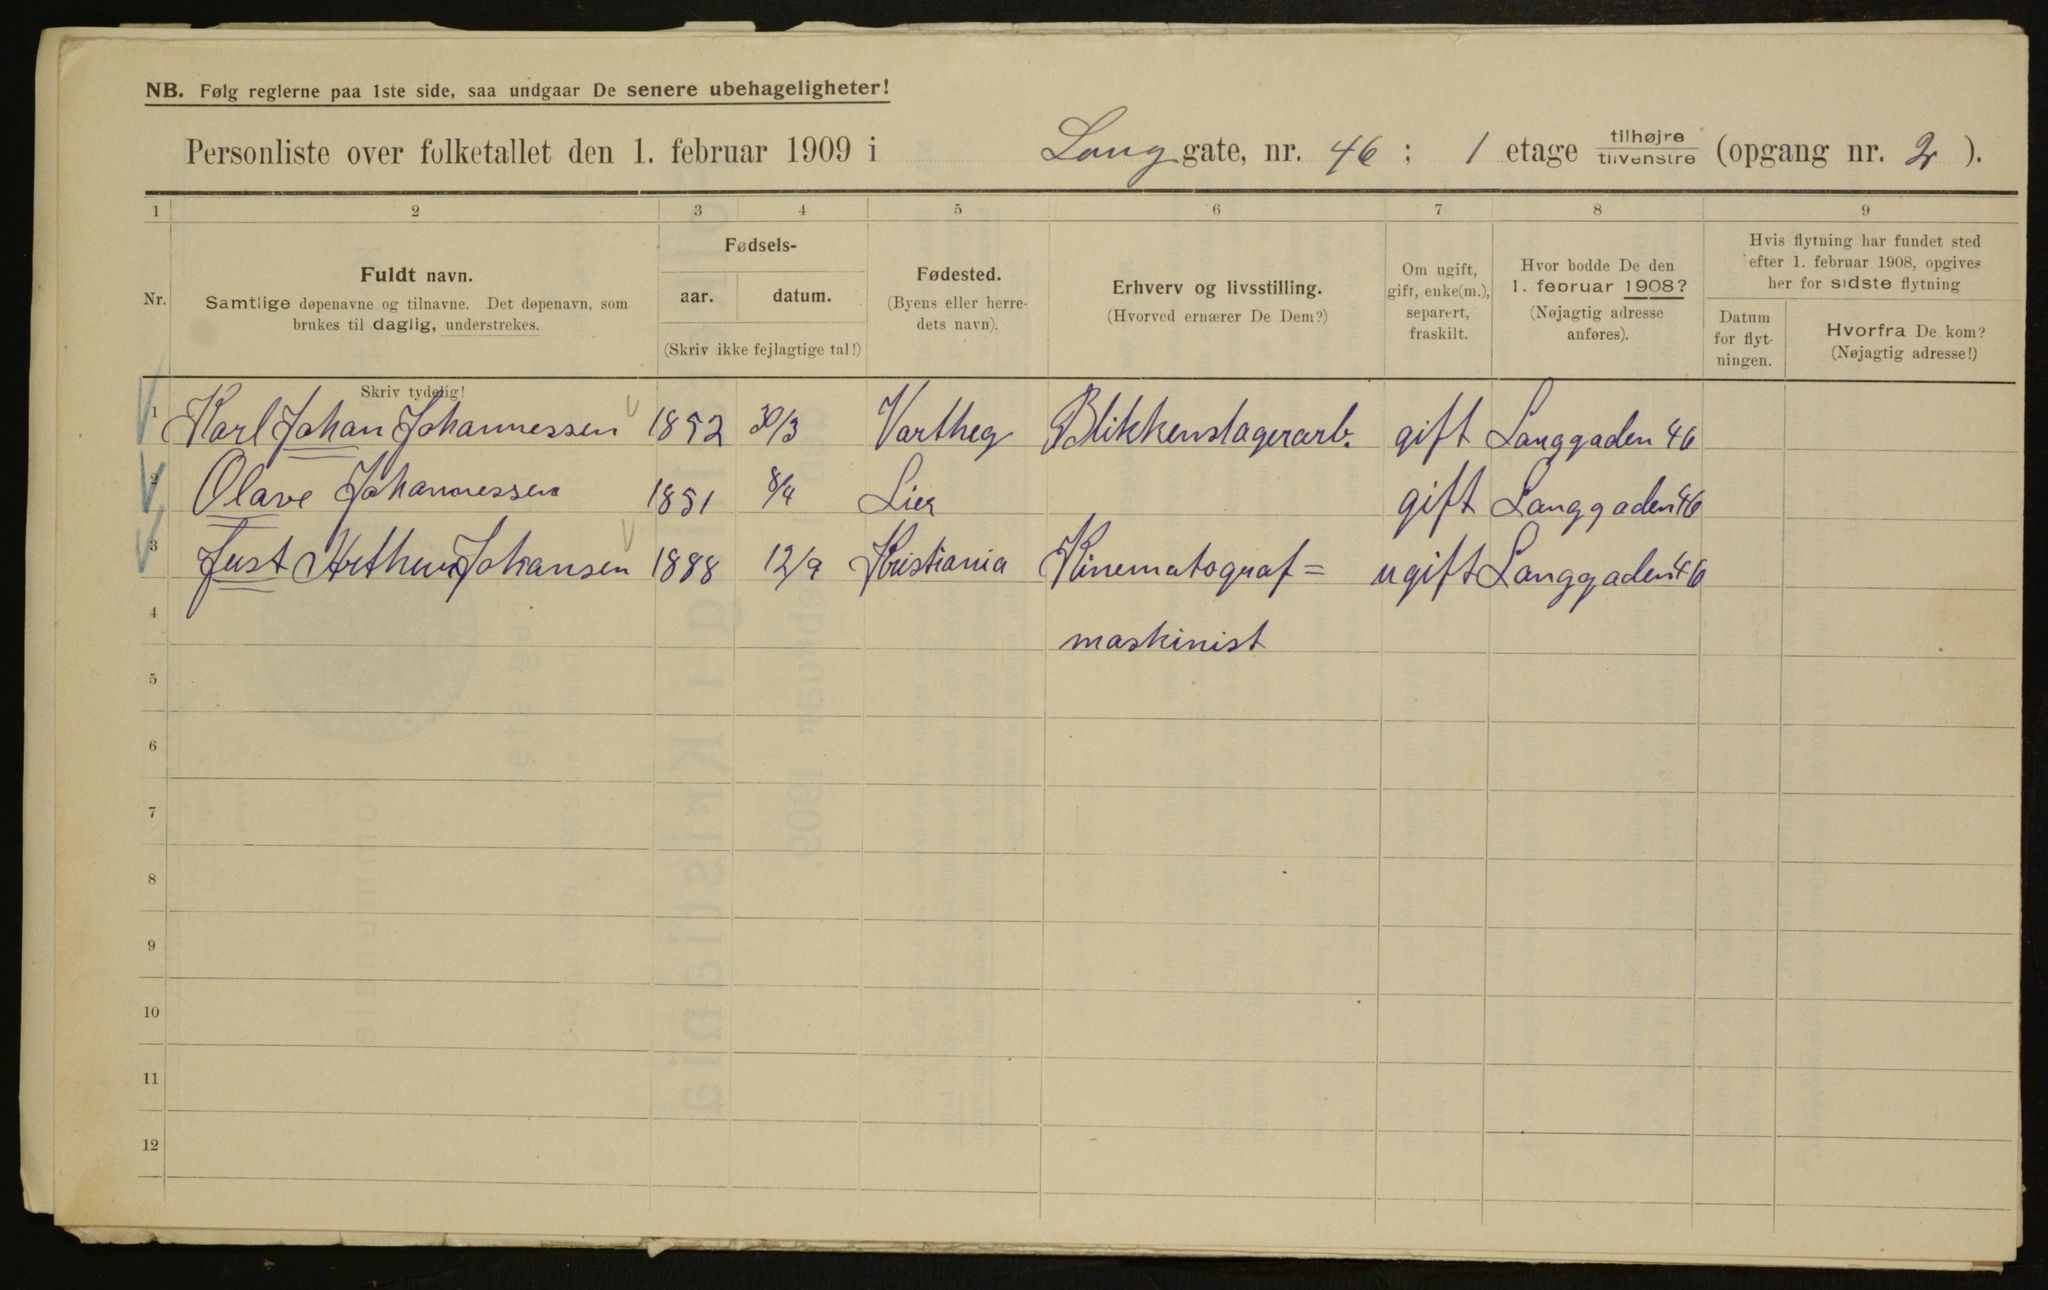 NB. Følg reglerne paa 1ste side, saa undgaar De senere ubehageligheter!
Personliste over folketallet den 1. februar 1909 i Lang gate, nr. 46 ; 1 etage tilhøjre tilvenstre (opgang nr. 2 ).
1 2 3 4 5 6 7 8 9
Nr.
Fuldt navn.
Samtlige døpenavne og tilnavne. Det døpenavn, som
brukes til daglig, understrekes.
Skriv tydelig!
Fødsels-
aar. datum.
(Skriv ikke fejlagtige tal!)
Fødested.
(Byens eller herre-
dets navn).
Erhverv og livsstilling.
(Hvorved ernærer De Dem?)
Om ugift,
gift, enke(m.),
separert,
fraskilt.
Hvor bodde De den
1. februar 1908?
(Nøjagtig adresse
anføres).
Hvis flytning har fundet sted
efter 1. februar 1908, opgives
her for sidste flytning
Datum
for flyt-
ningen.
Hvorfra De kom?
(Nøjagtig adresse!)
1 Karl Johan Johannessen 1852 30/3 Vartheg Blikkenslagerarb. gift Langgaden 46
2 Olave Johannessen 1851 8/4 Lier gift Langgaden 46
3 Just Arthur Johansen 1888 12/9 Kristiania Kinematograf= ugift Langgaden 46
4 maskinist
5
6
7
8
9
10
11
12